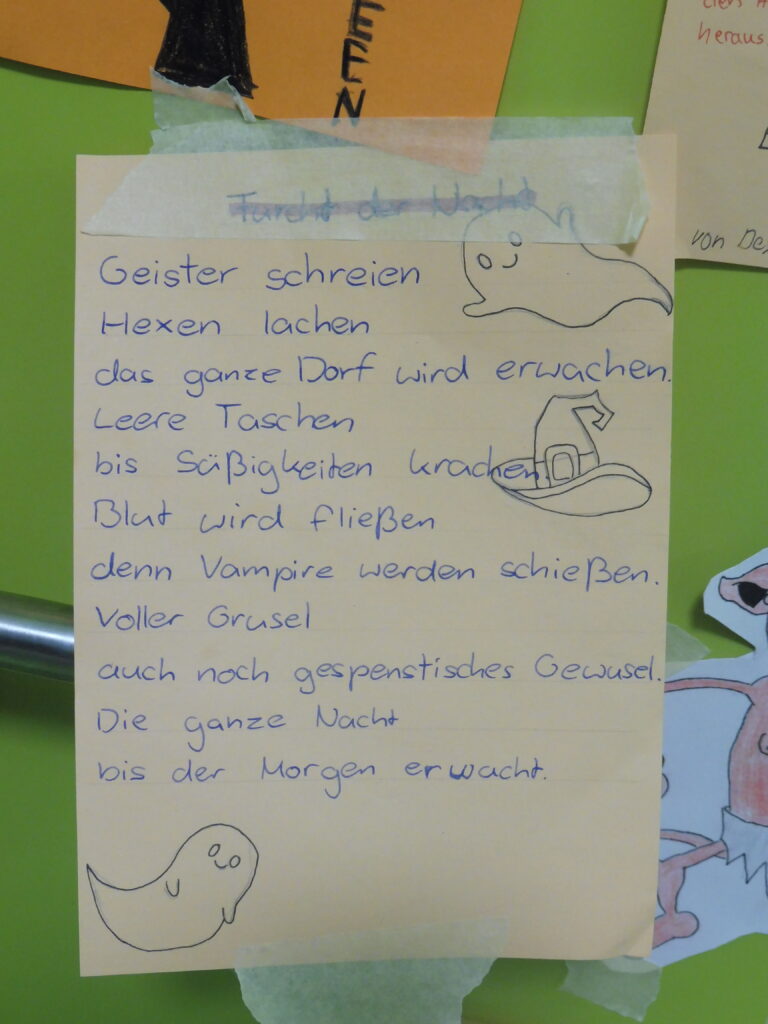 EEN
heraus
von De
Furcht der Nacht
Geister schreien
Hexen lachen
das ganze Dorf wird erwachen.
Leere Taschen
bis Süßigkeiten krachen.
Blut wird fließen
denn Vampire werden schießen.
Voller Grusel
auch noch gespenstisches Gewusel.
Die ganze Nacht
bis der Morgen erwacht.